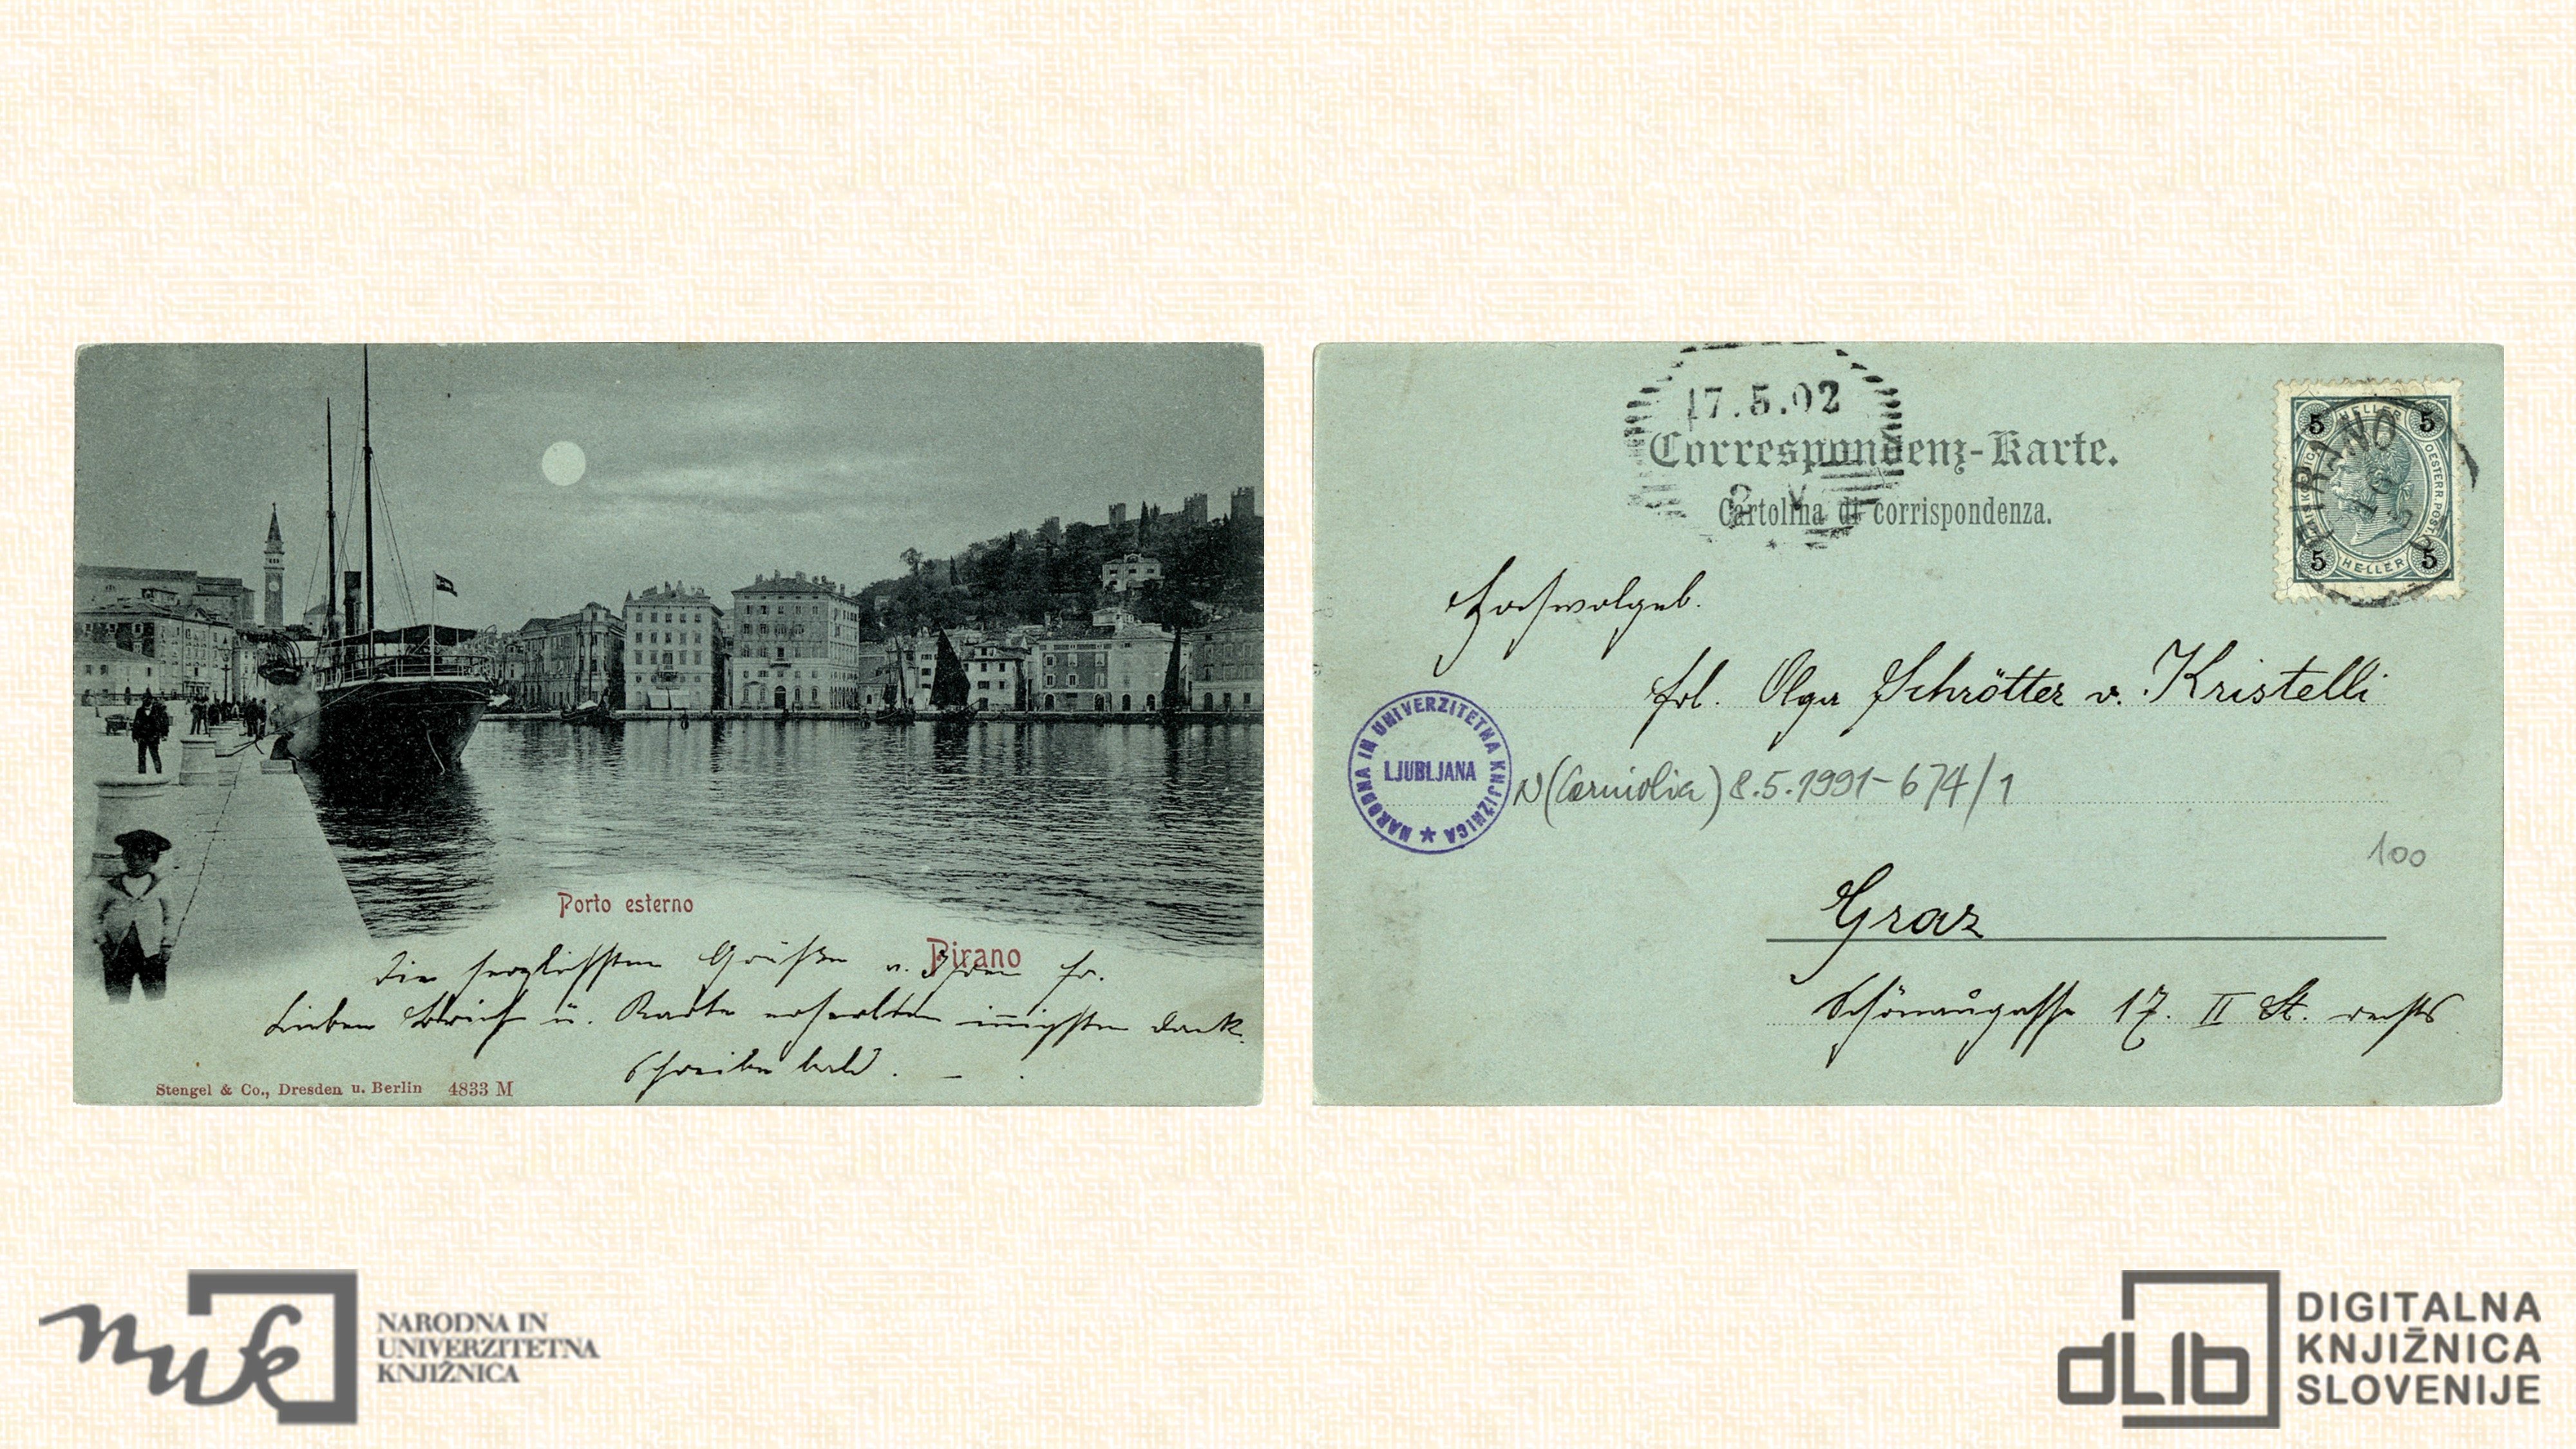 Porto esterno
Pirano
Die herzlichsten Grüße v. Ihrem Fr.
Lieben Brief u. Karte erhalten innigsten Dank.
Schreibe bald.
Stengel & Co., Dresden u. Berlin 4833 M
17.5.02
Correspondenz-Karte.
Cartolina di corrispondenza.
5 HELLER 5
PIRANO
5 HELLER 5
Hochwolgeb.
Frl. Olga Schrötter v. Kristelli
NARODNA IN UNIVERZITETNA KNJIŽNICA
LJUBLJANA
N (Carniolia) 8.5.1991-674/1
100
Graz
Schönaugasse 17. II St. rechts
nuk
NARODNA IN
UNIVERZITETNA
KNJIŽNICA
dLib
DIGITALNA
KNJIŽNICA
SLOVENIJE